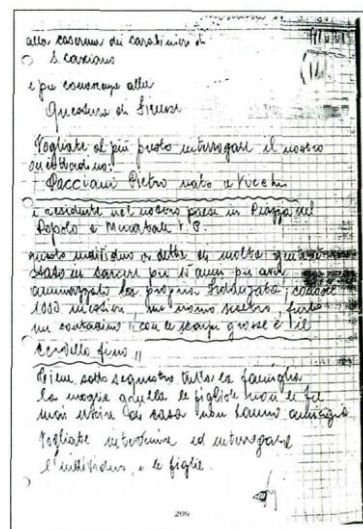 alla caserma dei carabinieri di
S. Casciano
e per conoscenza alla
Questura di Firenze
Vogliate al più presto interrogare il nostro
concittadino:
Pacciani Pietro nato a Vicchio
e residente nel nostro paese in Piazza del
Popolo a Mercatale V. P.
questo individuo a detta di molta gente è
stato in carcere per 15 anni per aver
ammazzato la propria fidanzata; conosce
1000 mestieri, un uomo scaltro, furbo
un contadino "con le scarpe grosse e il
cervello fino"
Tiene sotto sequestro tutta la famiglia
la moglie grulla le figliole non le fa
mai uscire di casa non hanno amicizie
Vogliate intervenire ed interrogare
l'individuo, e le figlie.
209